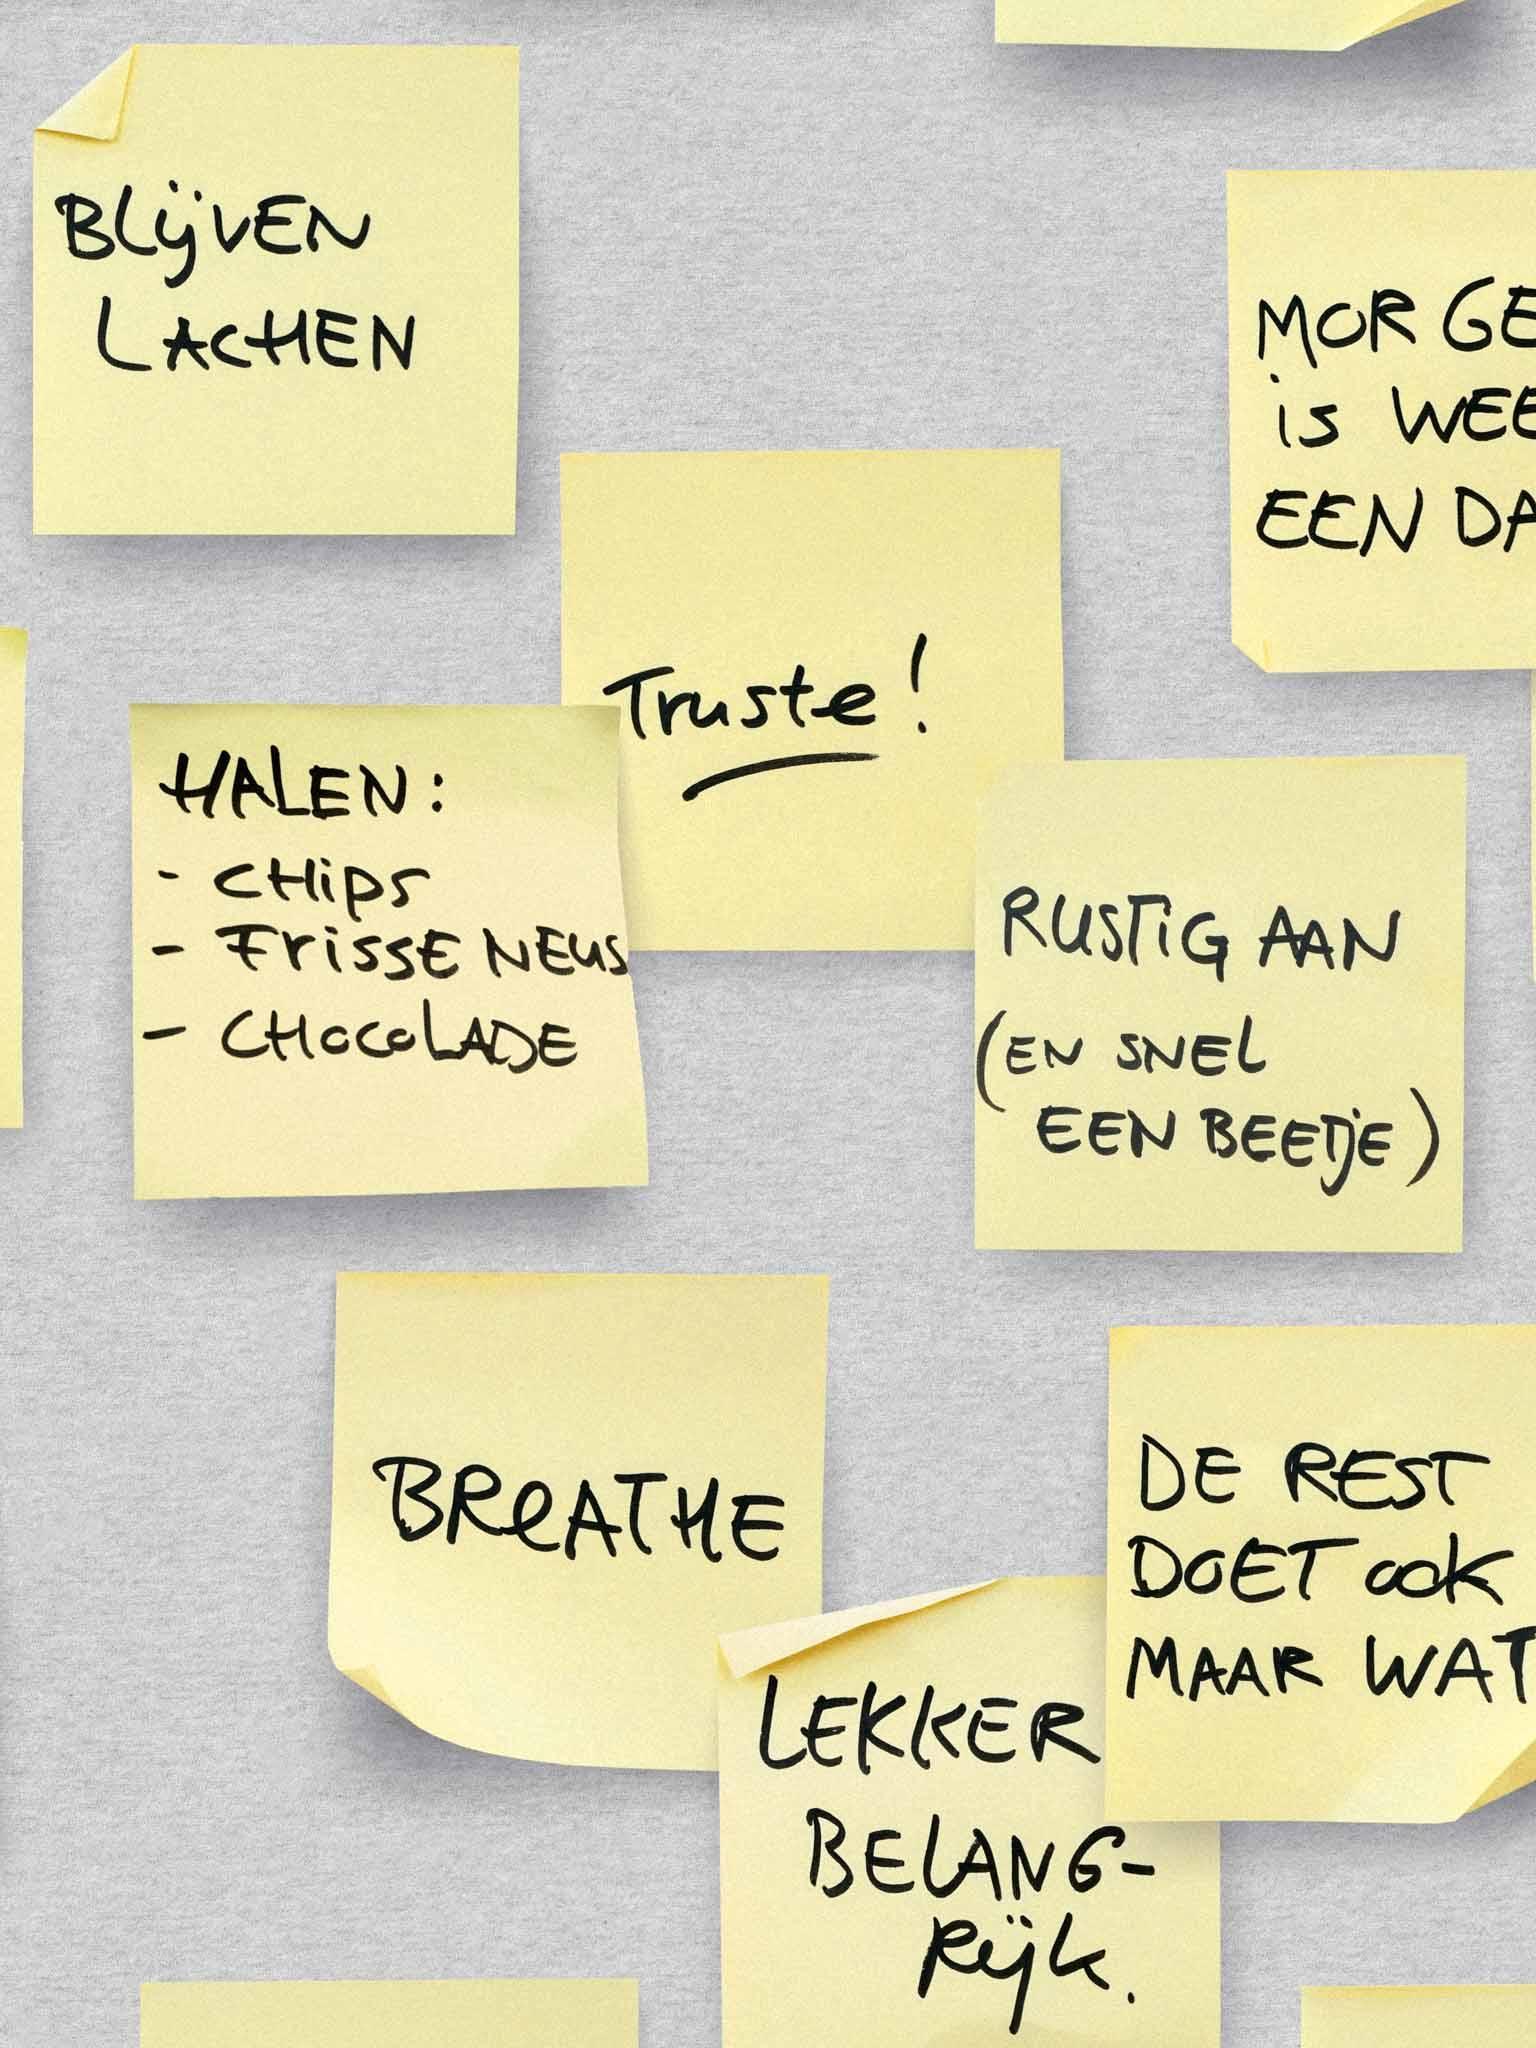 BLijVEN
LACHEN
MORGE
is WEE
EEN DA
Truste!
HALEN:
- CHiPS
- FrissE NEUS
- CHOCOLADE
RUSTiG AAN
(EN SNEL
EEN BEETjE)
BReATHE
DE REST
DOET OOK
MAAR WAT
LEKKER
BELANG-
Rijk.